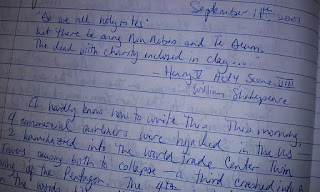 September 11th 2001
"Do we all holy rites:
Let there be sung Non Nobis and Te Deum,
The dead with charity enclosed in clay..."
Henry V Act 4 Scene VIII
William Shakespeare
I hardly know how to write this. This morning,
4 commercial airliners were hijacked in the US
2 kamikazed into the World Trade Center Twin
Towers causing both to collapse – a third crashed into a
of the Pentagon. The 4th
The words